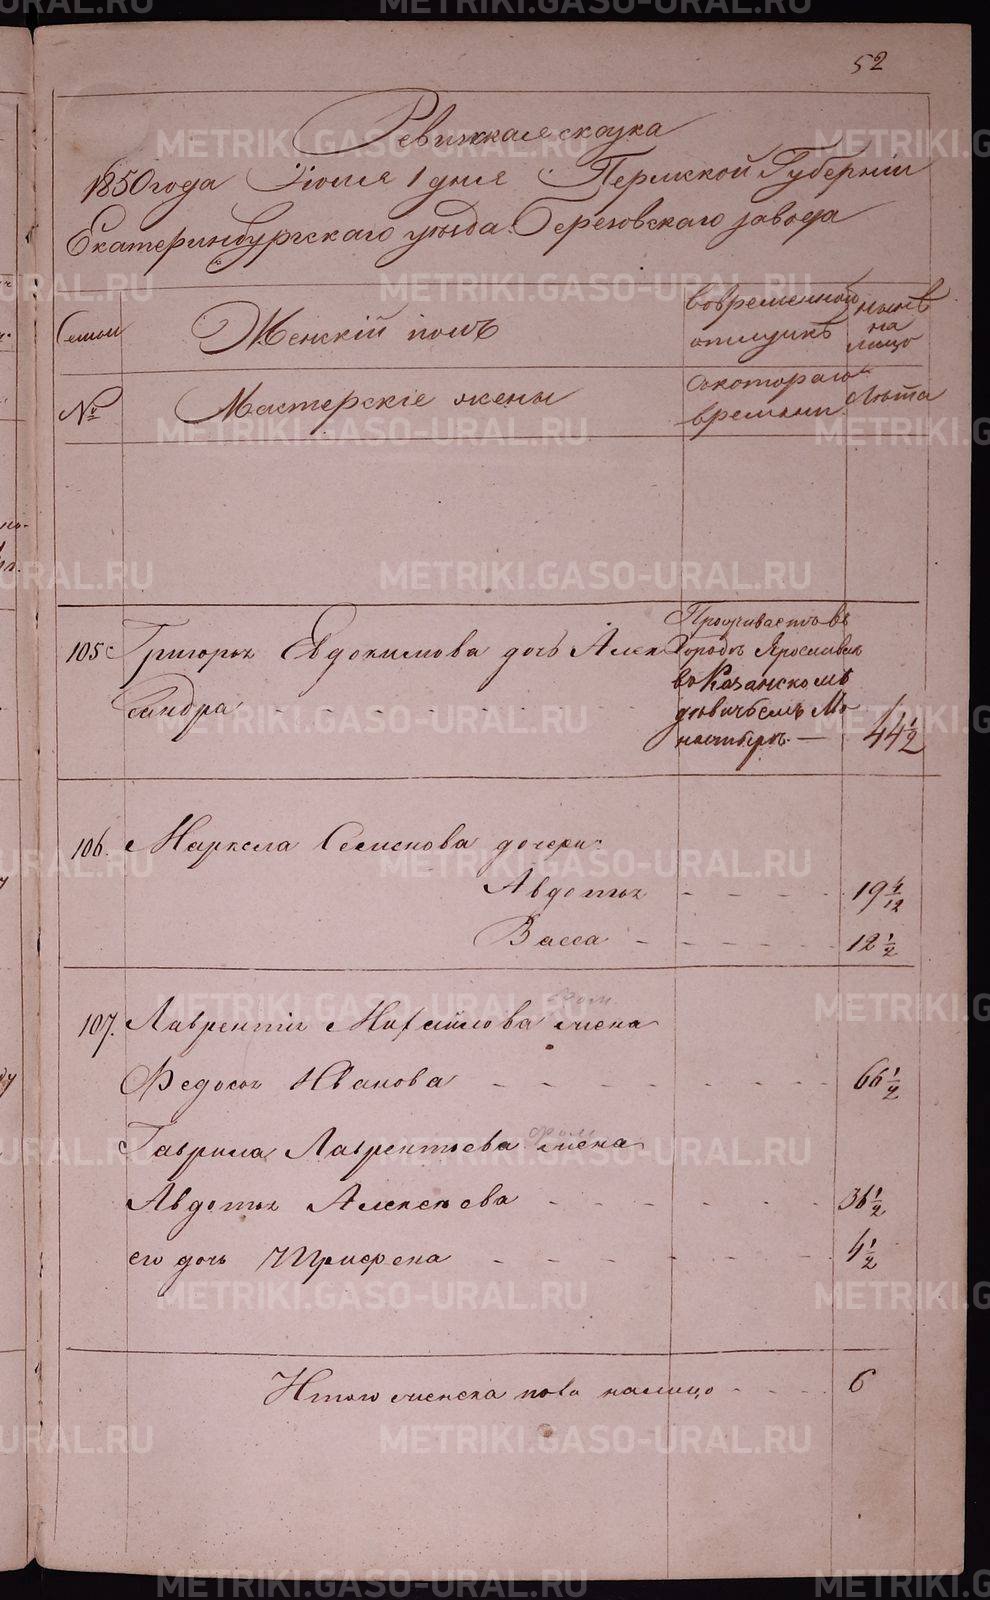 52
Ревижская сказка
1850 года Июля 1 дня Пермской Губерніи
Екатеринбургскаго уѣзда Березовскаго завода
Семьи
Женскій полъ
во временной
отлучкѣ
нынѣ
на
лицо
№
Мастерскіе жены
съ котораго
времени
Лѣта
105
Григорья Евдокимова дочь Алек
сандра
Проживаетъ въ
Городѣ Ярославлѣ
въ Казанскомъ
дѣвичьемъ Мо
настырѣ. —
44 1/2
106.
Маркела Семенова дочери
Авдотья
19 4/12
Васса
12 1/2
107.
Лаврентія Михайлова жена
Федосья Иванова
66 1/2
Гаврила Лаврентьева жена
Авдотья Алексѣева
36 1/2
его дочь
4 1/2
Итого женска пола налицо
6
METRIKI.GASO-URAL.RU